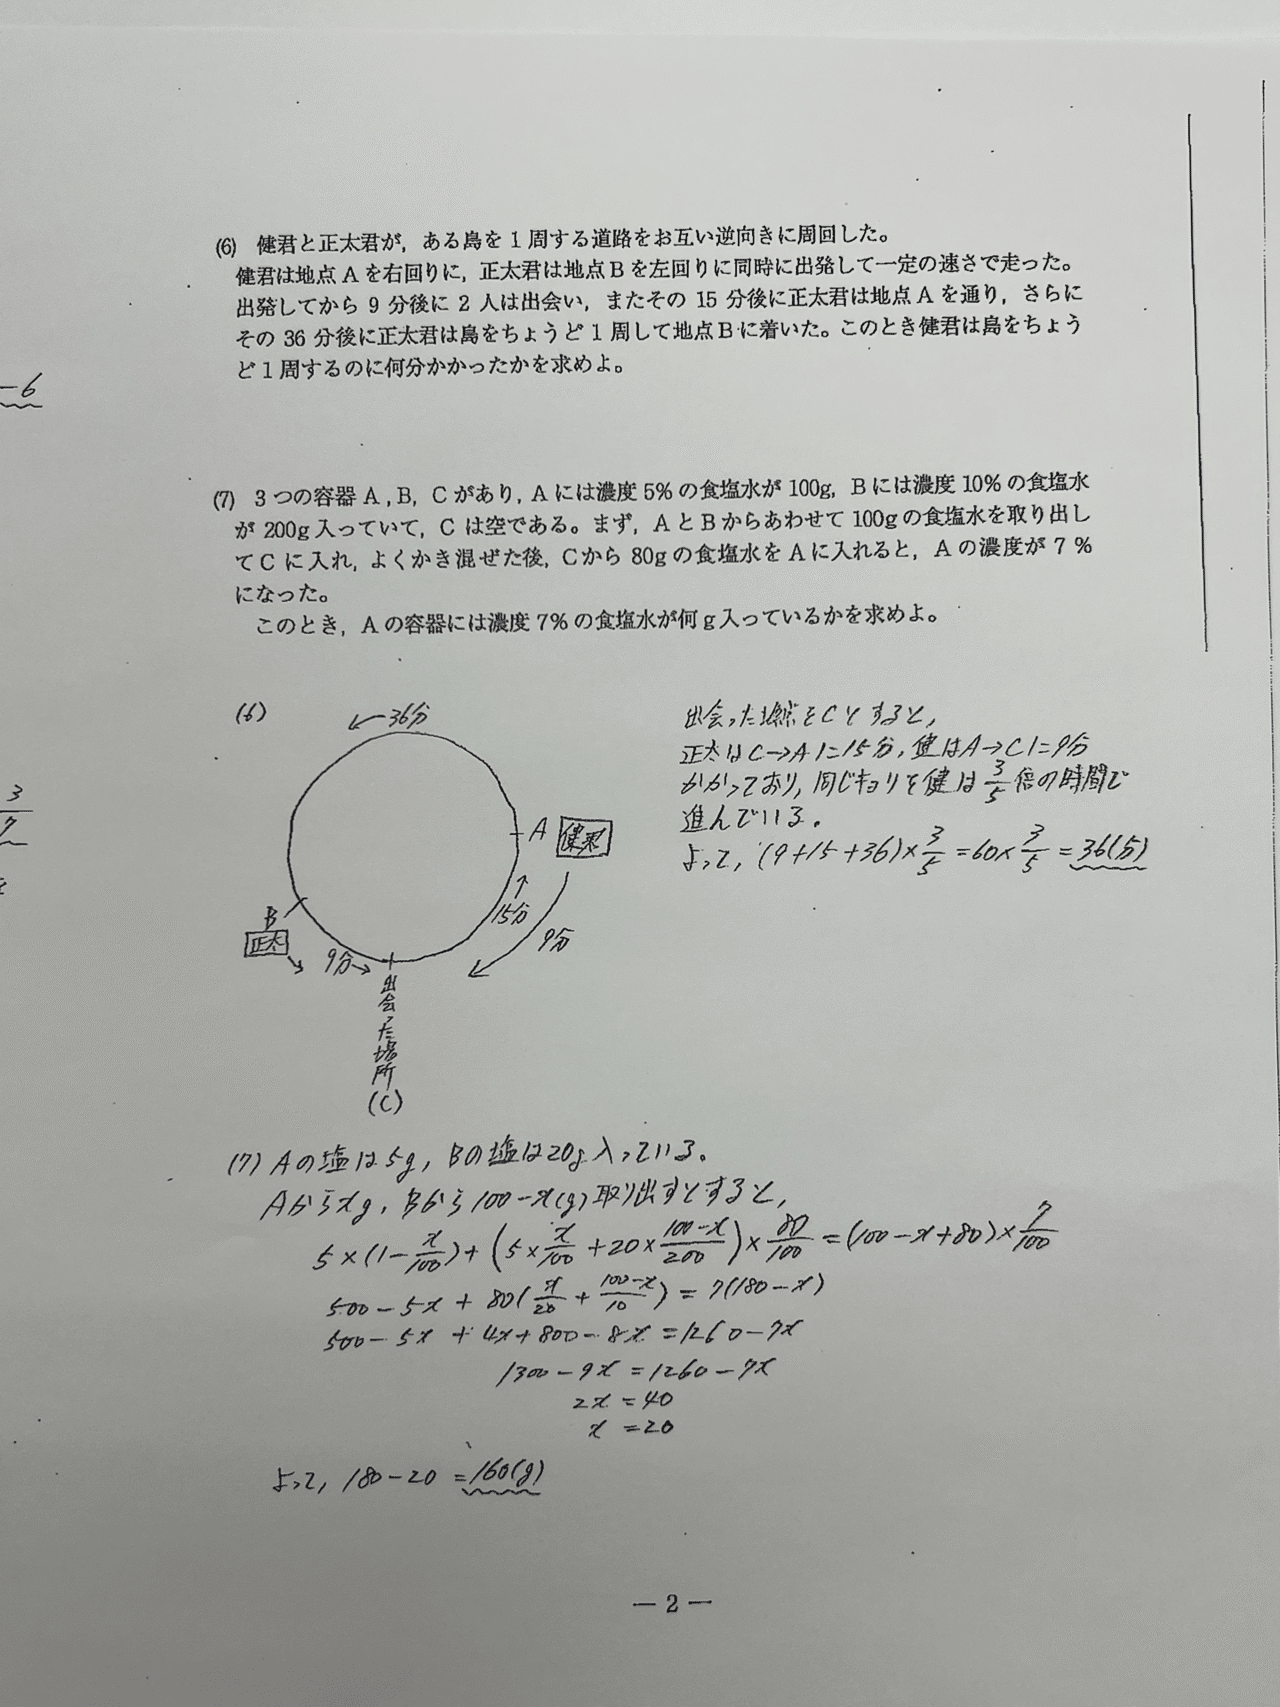 (6) 健君と正太君が，ある島を1周する道路をお互い逆向きに周回した。
健君は地点Aを右回りに，正太君は地点Bを左回りに同時に出発して一定の速さで走った。
出発してから9分後に2人は出会い，またその15分後に正太君は地点Aを通り，さらに
その36分後に正太君は島をちょうど1周して地点Bに着いた。このとき健君は島をちょう
ど1周するのに何分かかったかを求めよ。
-6
(7) 3つの容器A，B，Cがあり，Aには濃度5%の食塩水が100g，Bには濃度10%の食塩水
が200g入っていて，Cは空である。まず，AとBからあわせて100gの食塩水を取り出し
てCに入れ，よくかき混ぜた後，Cから80gの食塩水をAに入れると，Aの濃度が7%
になった。
このとき，Aの容器には濃度7%の食塩水が何g入っているかを求めよ。
(6)
←36分
A 健君
15分
9分
B
正太
9分→
出会った場所
(C)
出会った地点をCとすると，
正太はC→Aに15分，健はA→Cに9分
かかっており，同じキョリを健は3/5倍の時間で
進んでいる。
よって，(9+15+36)×3/5=60×3/5=36(分)
3/7
(7) Aの塩は5g，Bの塩は20g入っている。
Aからxg，Bから100-x(g)取り出すとすると，
5×(1-x/100)+(5×x/100+20×100-x/200)×80/100=(100-x+80)×7/100
500-5x+80(x/20+100-x/10)=7(180-x)
500-5x+4x+800-8x=1260-7x
1300-9x=1260-7x
2x=40
x=20
よって，180-20=160(g)
— 2 —